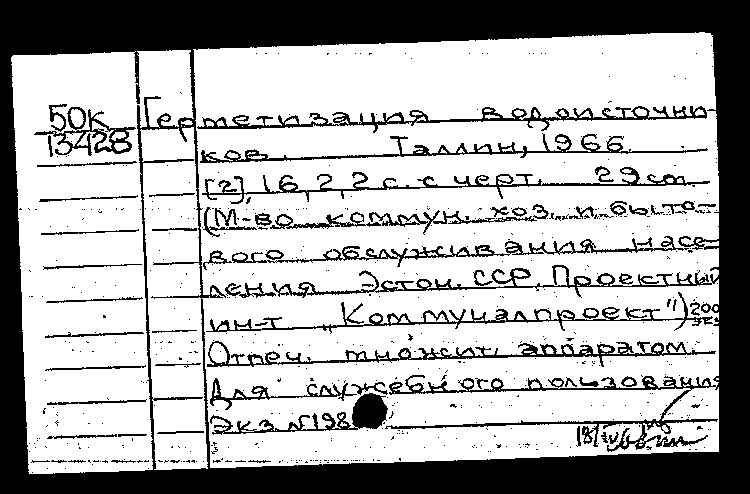 50к Герметизация водоисточни-
13428 ков. Таллин, 1966.
[2], 16, 2, 2 с. с черт. 29 cm
(М-во коммун. хоз. и быто-
вого обслуживания насе-
ления Эстон. ССР. Проектный
ин-т „Коммуналпроект") 200 экз
Отпеч. множит. аппаратом.
Для служебного пользования
Экз №198
18/IV